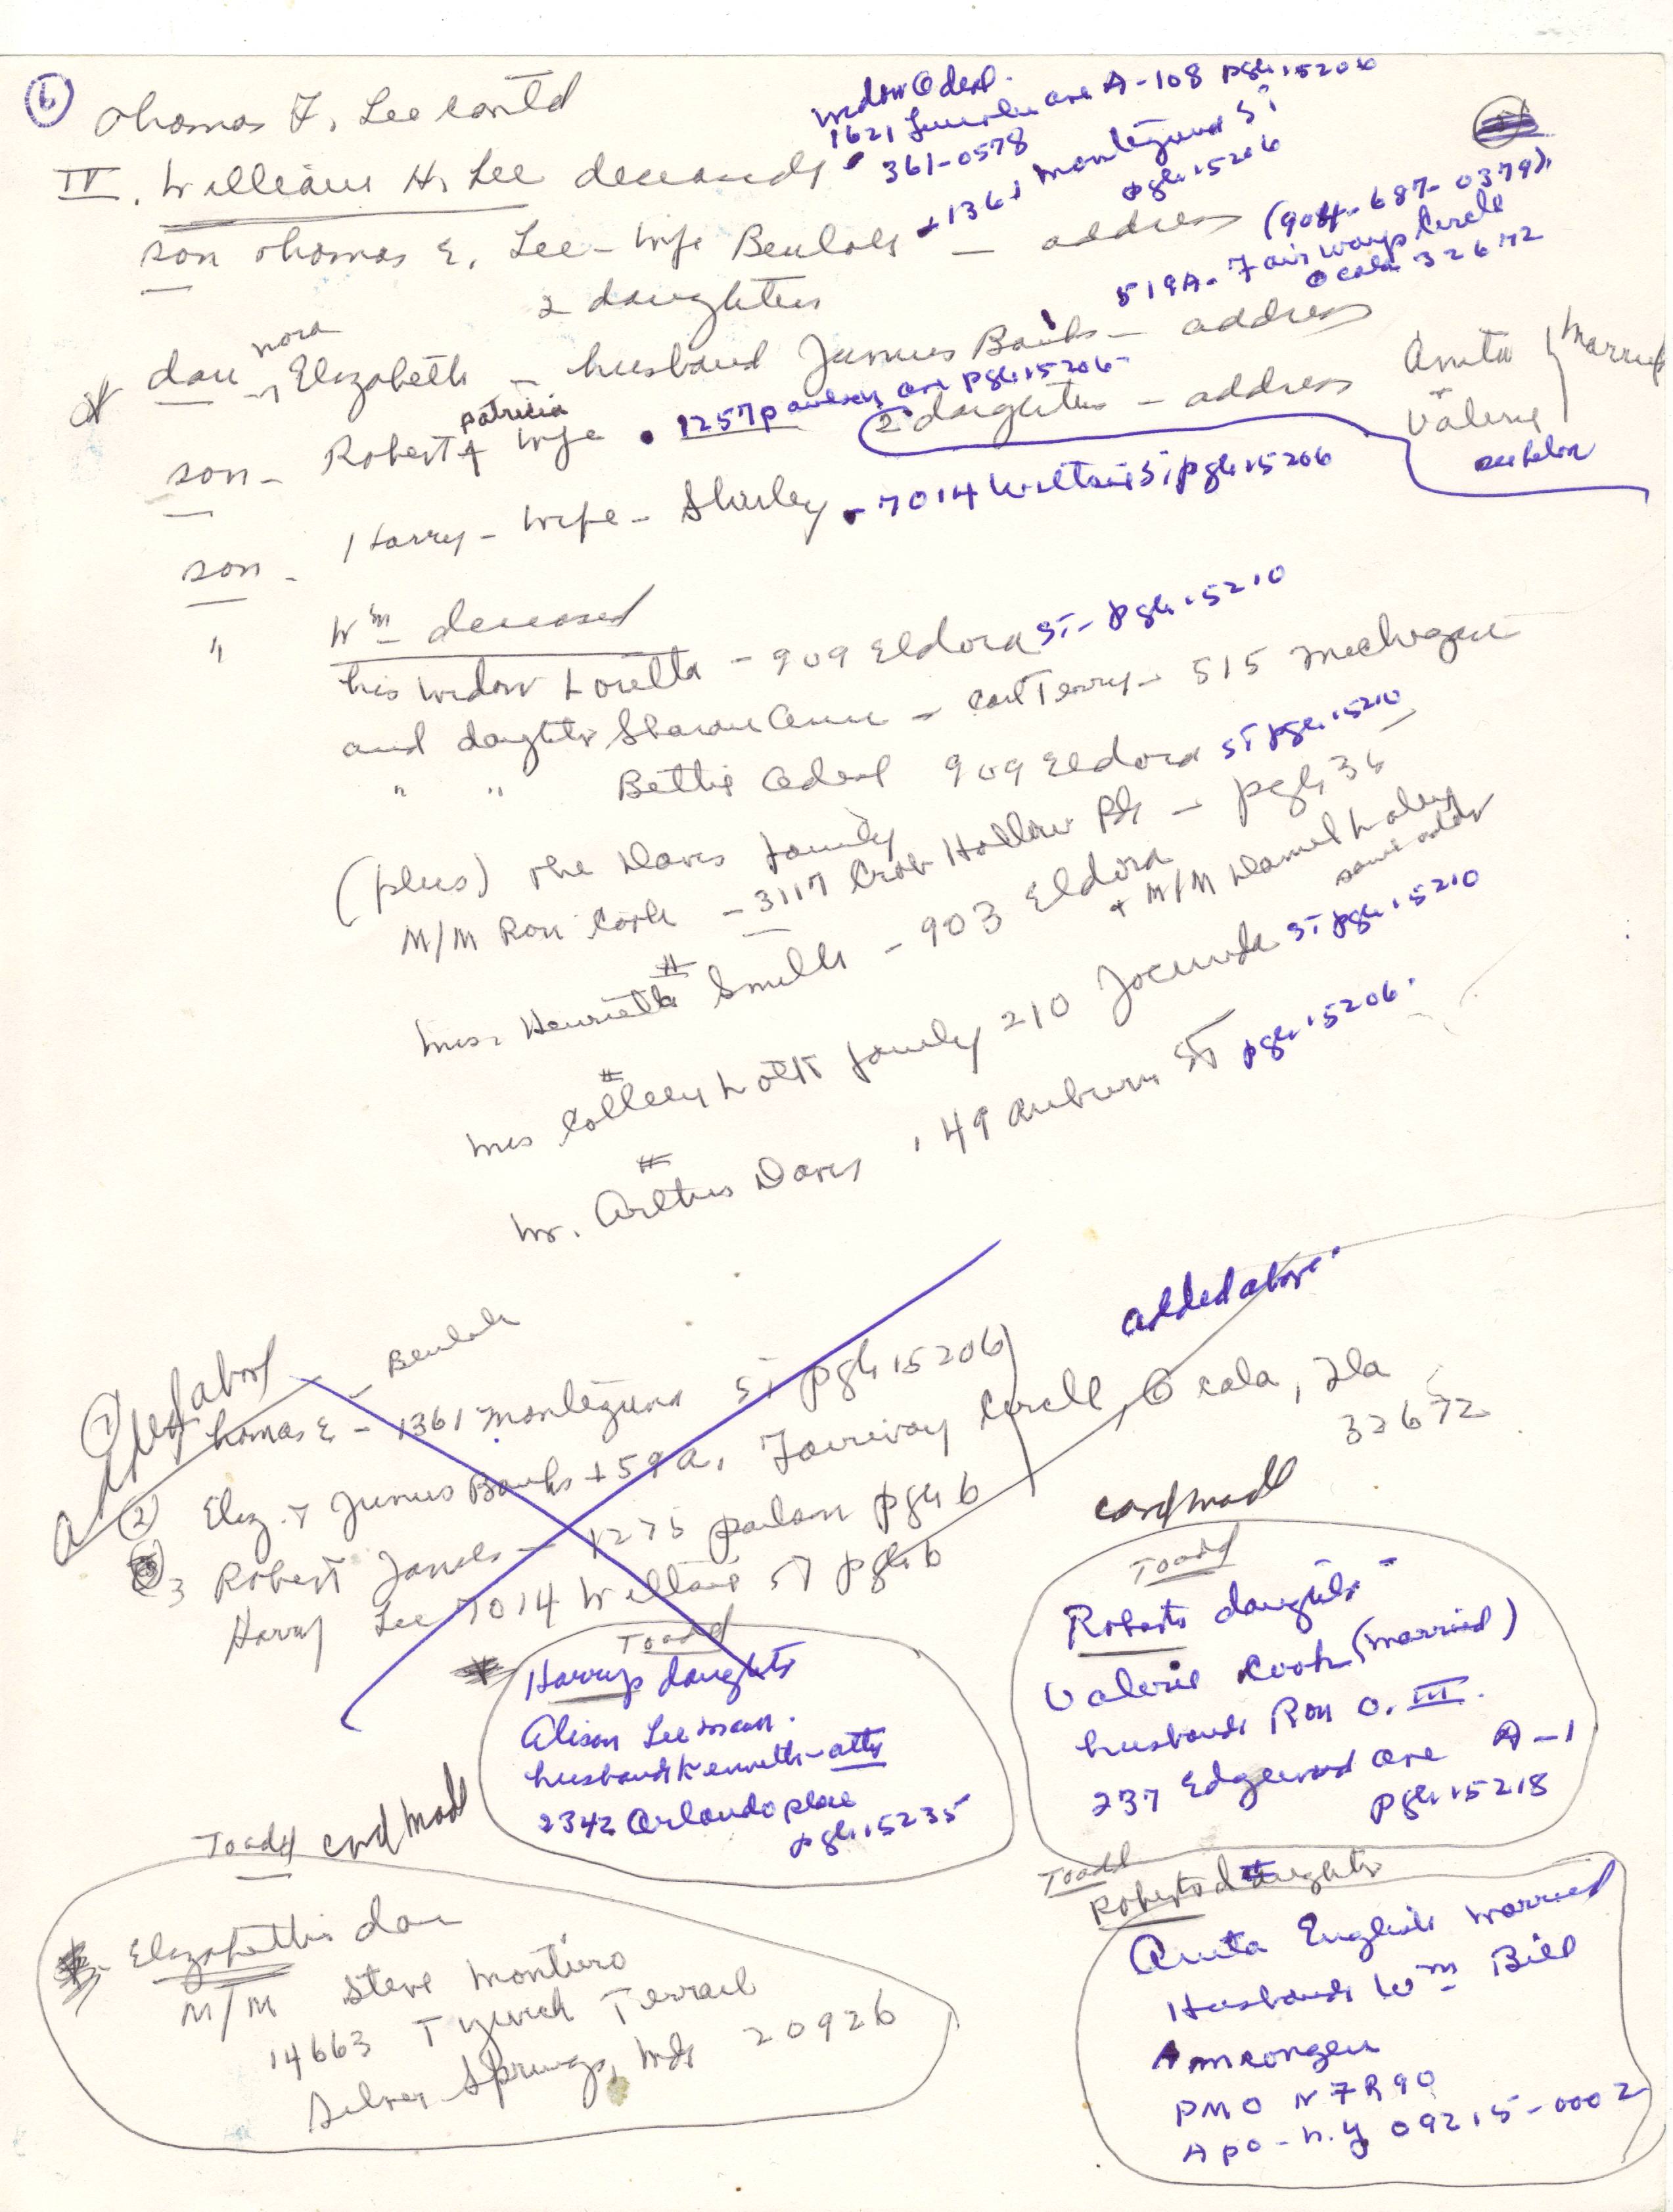 6
Thomas F. Lee contd
widow Odesl.
1621 Lincoln ave A-108 pgh 15206
361-0578
IV. William H. Lee deceased
son Thomas E. Lee - wife Beulah - address
1361 Montezuma St
pgh 15206
2 daughters
(904-687-0379)
519A- Fairways Circle
Ocala 32672
dau nora Elizabeth - husband Junius Banks - address
2 daughters - address
Anita
Valerie
married
son - Robert & wife patricia
1257 paulson ave pgh 15206
son - Harry - wife - Shirley - 7014 Wiltsie St pgh 15206
" Wm deceased
his widow Loretta - 909 Eldora St - pgh 15210
and daughter Sharon Ann - Carl Terry - 515 Michigan
" " Bettie Odesl 909 Eldora St pgh 15210
(plus) The Davis family
M/M Ron Cook - 3117 Crab Hollow Rd - pgh 36
Mrs. Henrietta Smith - 903 Eldora
+ M/M Daniel
same addr
Mrs Colleen Lott family 210 Jocunda St pgh 15210
Mr. Arthur Davis, 49 Auburn St pgh 15206.
added above
1 Thomas E - Beulah - 1361 Montezuma St pgh 15206
2 Eliz. + Junius Banks + 59A, Fairway Circle, Ocala, Fla
32672
3 Robert James - 1275 paulson pgh 6
Harry Lee 7014 Wiltsie St pgh 6
card made
To add
Roberts daughter -
Valerie Cook (married)
husband Ron O. III.
237 Edgewood ave A-1
pgh 15218
To add
Harrys daughter
Alison Leeman.
husband Kenneth - atty
2342 Orlando place
pgh 15235
To add card made
Elizabeths dau
M/M Steve Montiero
14663 Tynewick Terrace
Silver Springs, Md 20926
To add
Roberts daughter
Anita English married
Husband Wm Bill
PMO N7R90
Apo - N.Y 09215-0002